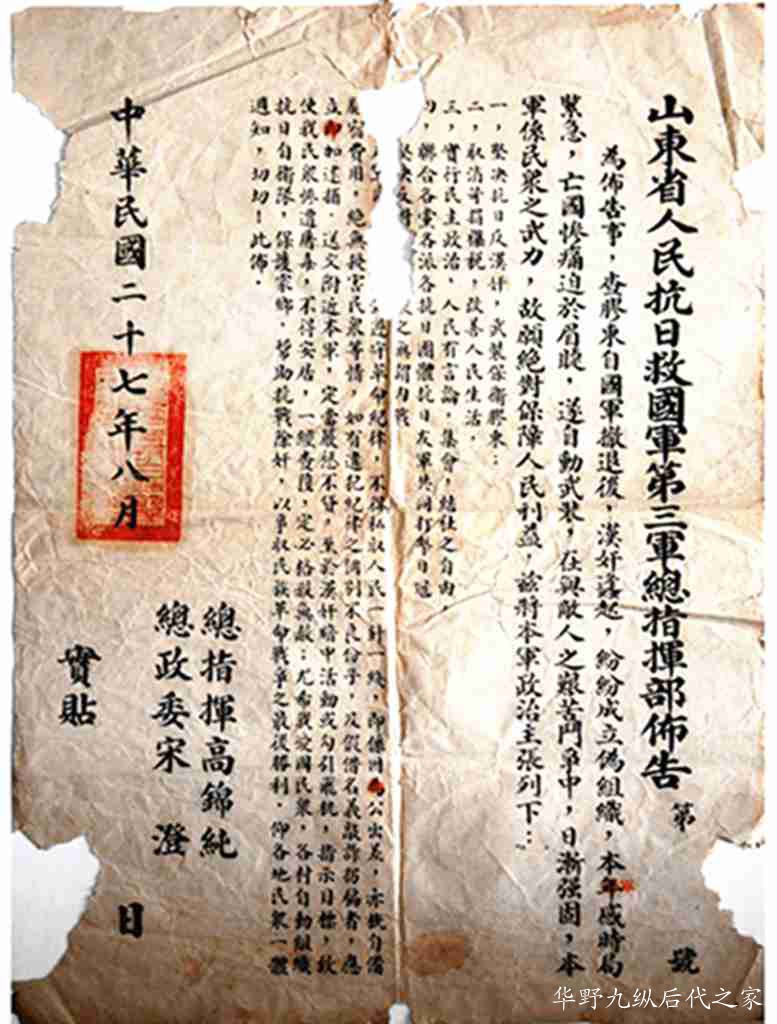 山東省人民抗日救國軍第三軍總指揮部佈告
第 號
為佈告事，查膠東自國軍撤退後，漢奸蠭起，紛紛成立偽組織，本軍感時局
緊急，亡國慘痛迫於眉睫，遂自動武裝，在與敵人之艱苦鬥爭中，日漸强固，本
軍係民眾之武力，故願絕對保障人民利益，茲將本軍政治主張列下：
一，堅决抗日反漢奸，武裝保衛膠東：
二，取消苛捐雜税，改善人民生活，
三，實行民主政治，人民有言論，集會，結社之自由，
四，聯合各黨各派各抗日團體抗日友軍共同打擊日寇
堅决反對 之無謂內戰
遵守革命紀律，不得私取人民一針一綫，即偶因為公出差，亦概自備
宿費用，絕無擾害民眾等情，如有違犯紀律之個别不良份子，及假借名義敲詐拐騙者，應
立即加逮捕，送交附近本軍，定當嚴懲不貸，至於漢奸暗中活動或勾引飛機，指示目標，故
使我民眾慘遭屠毒，不得安居，一經查獲，定必格殺無赦；尤希我愛國民眾，各村自動組織
抗日自衛隊，保護家鄉，幫助抗戰除奸，以爭取民族革命戰爭之最後勝利，仰各地民眾一體
週知，切切！此佈。
總指揮高錦純
總政委宋 澄
中華民國二十七年八月 日
實貼
华野九纵后代之家